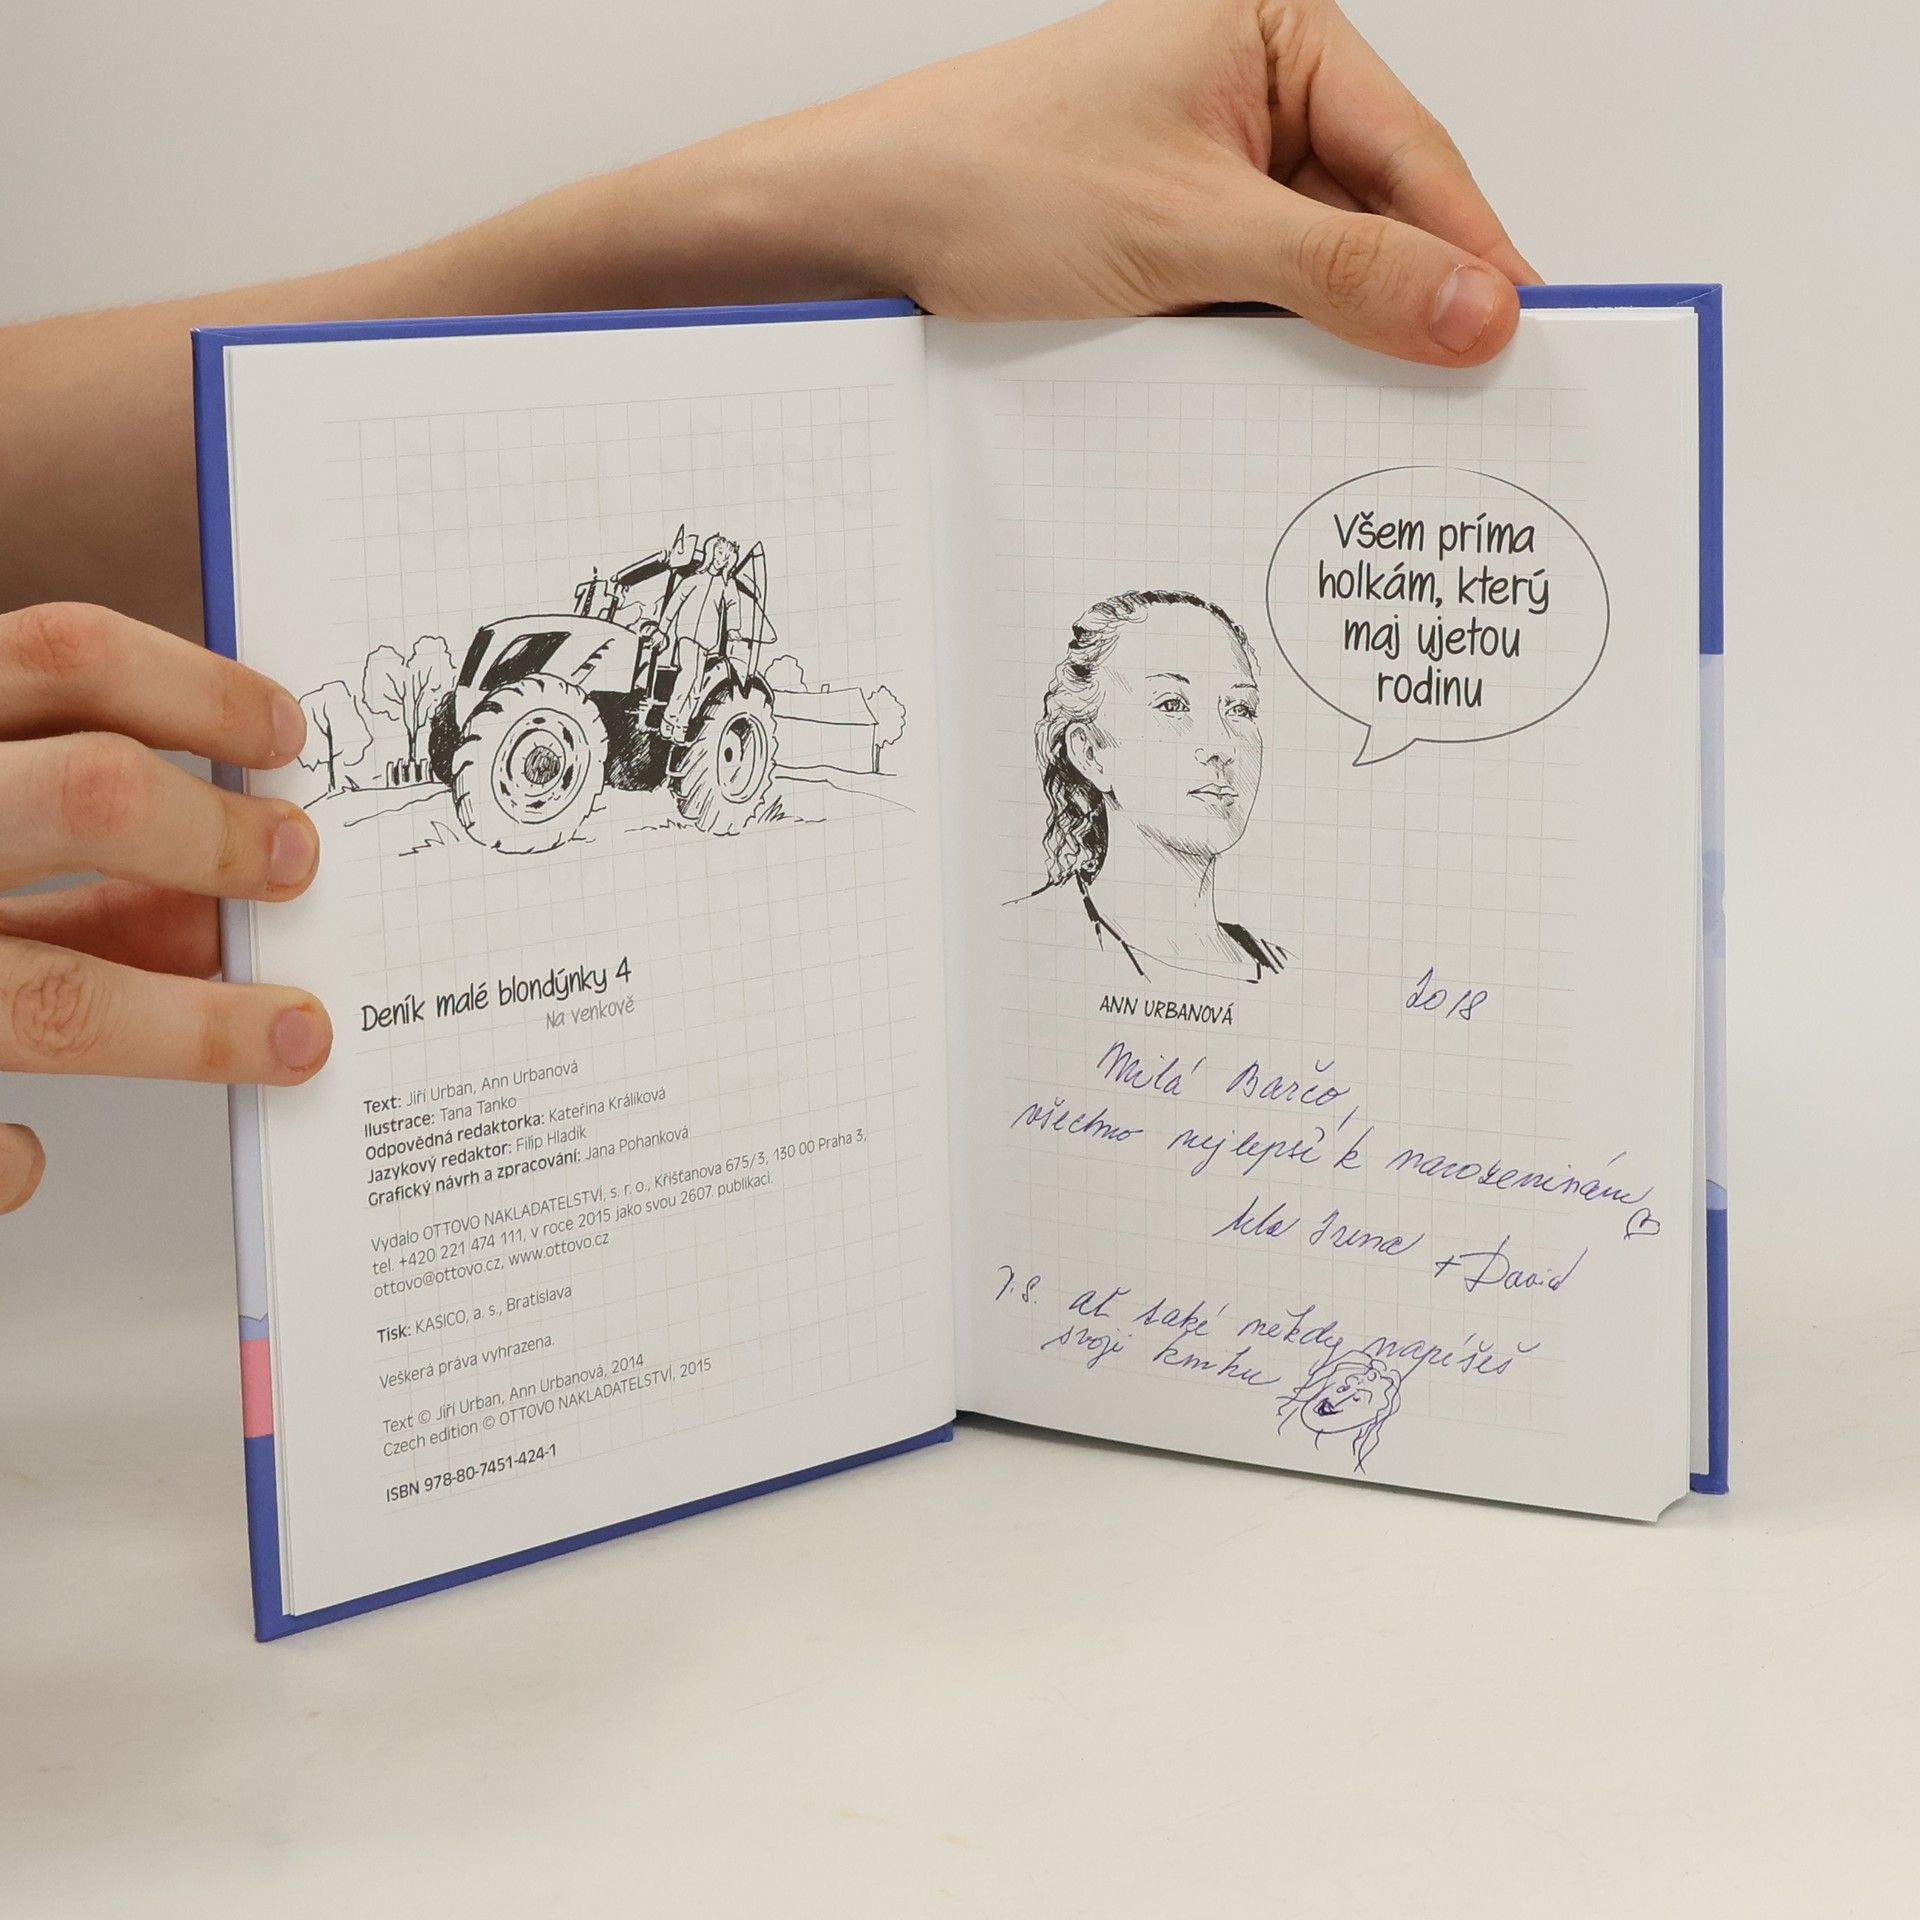 Deník malé blondýnky 4
Na venkově
Text: Jiří Urban, Ann Urbanová
Ilustrace: Tana Tanko
Odpovědná redaktorka: Kateřina Králíková
Jazykový redaktor: Filip Hladík
Grafický návrh a zpracování: Jana Pohanková
Vydalo OTTOVO NAKLADATELSTVÍ, s. r. o., Křišťanova 675/3, 130 00 Praha 3,
tel. +420 221 474 111, v roce 2015 jako svou 2607. publikaci.
ottovo@ottovo.cz, www.ottovo.cz
Tisk: KASICO, a. s., Bratislava
Veškerá práva vyhrazena.
Text © Jiří Urban, Ann Urbanová, 2014
Czech edition © OTTOVO NAKLADATELSTVÍ, 2015
ISBN 978-80-7451-424-1
Všem príma
holkám, který
maj ujetou
rodinu
ANN URBANOVÁ
2018
Milá Barčo,
všechno nejlepší k narozeninám
Irena
+ David
P.S. ať také někdy napíšeš
svoji knihu